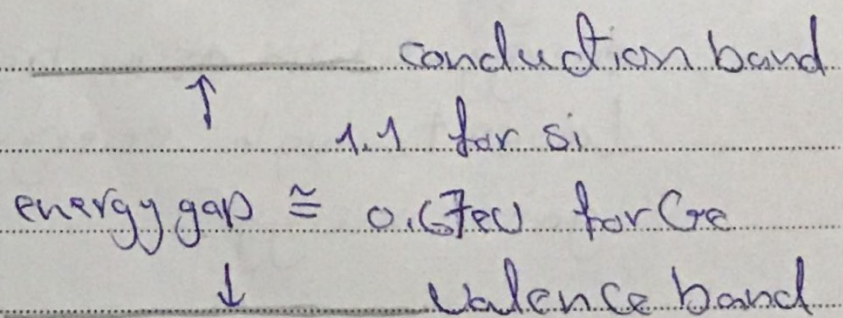 conduction band
↑
1.1 for si
energy gap ≅ 0.67eV for Ge
↓ Valence band